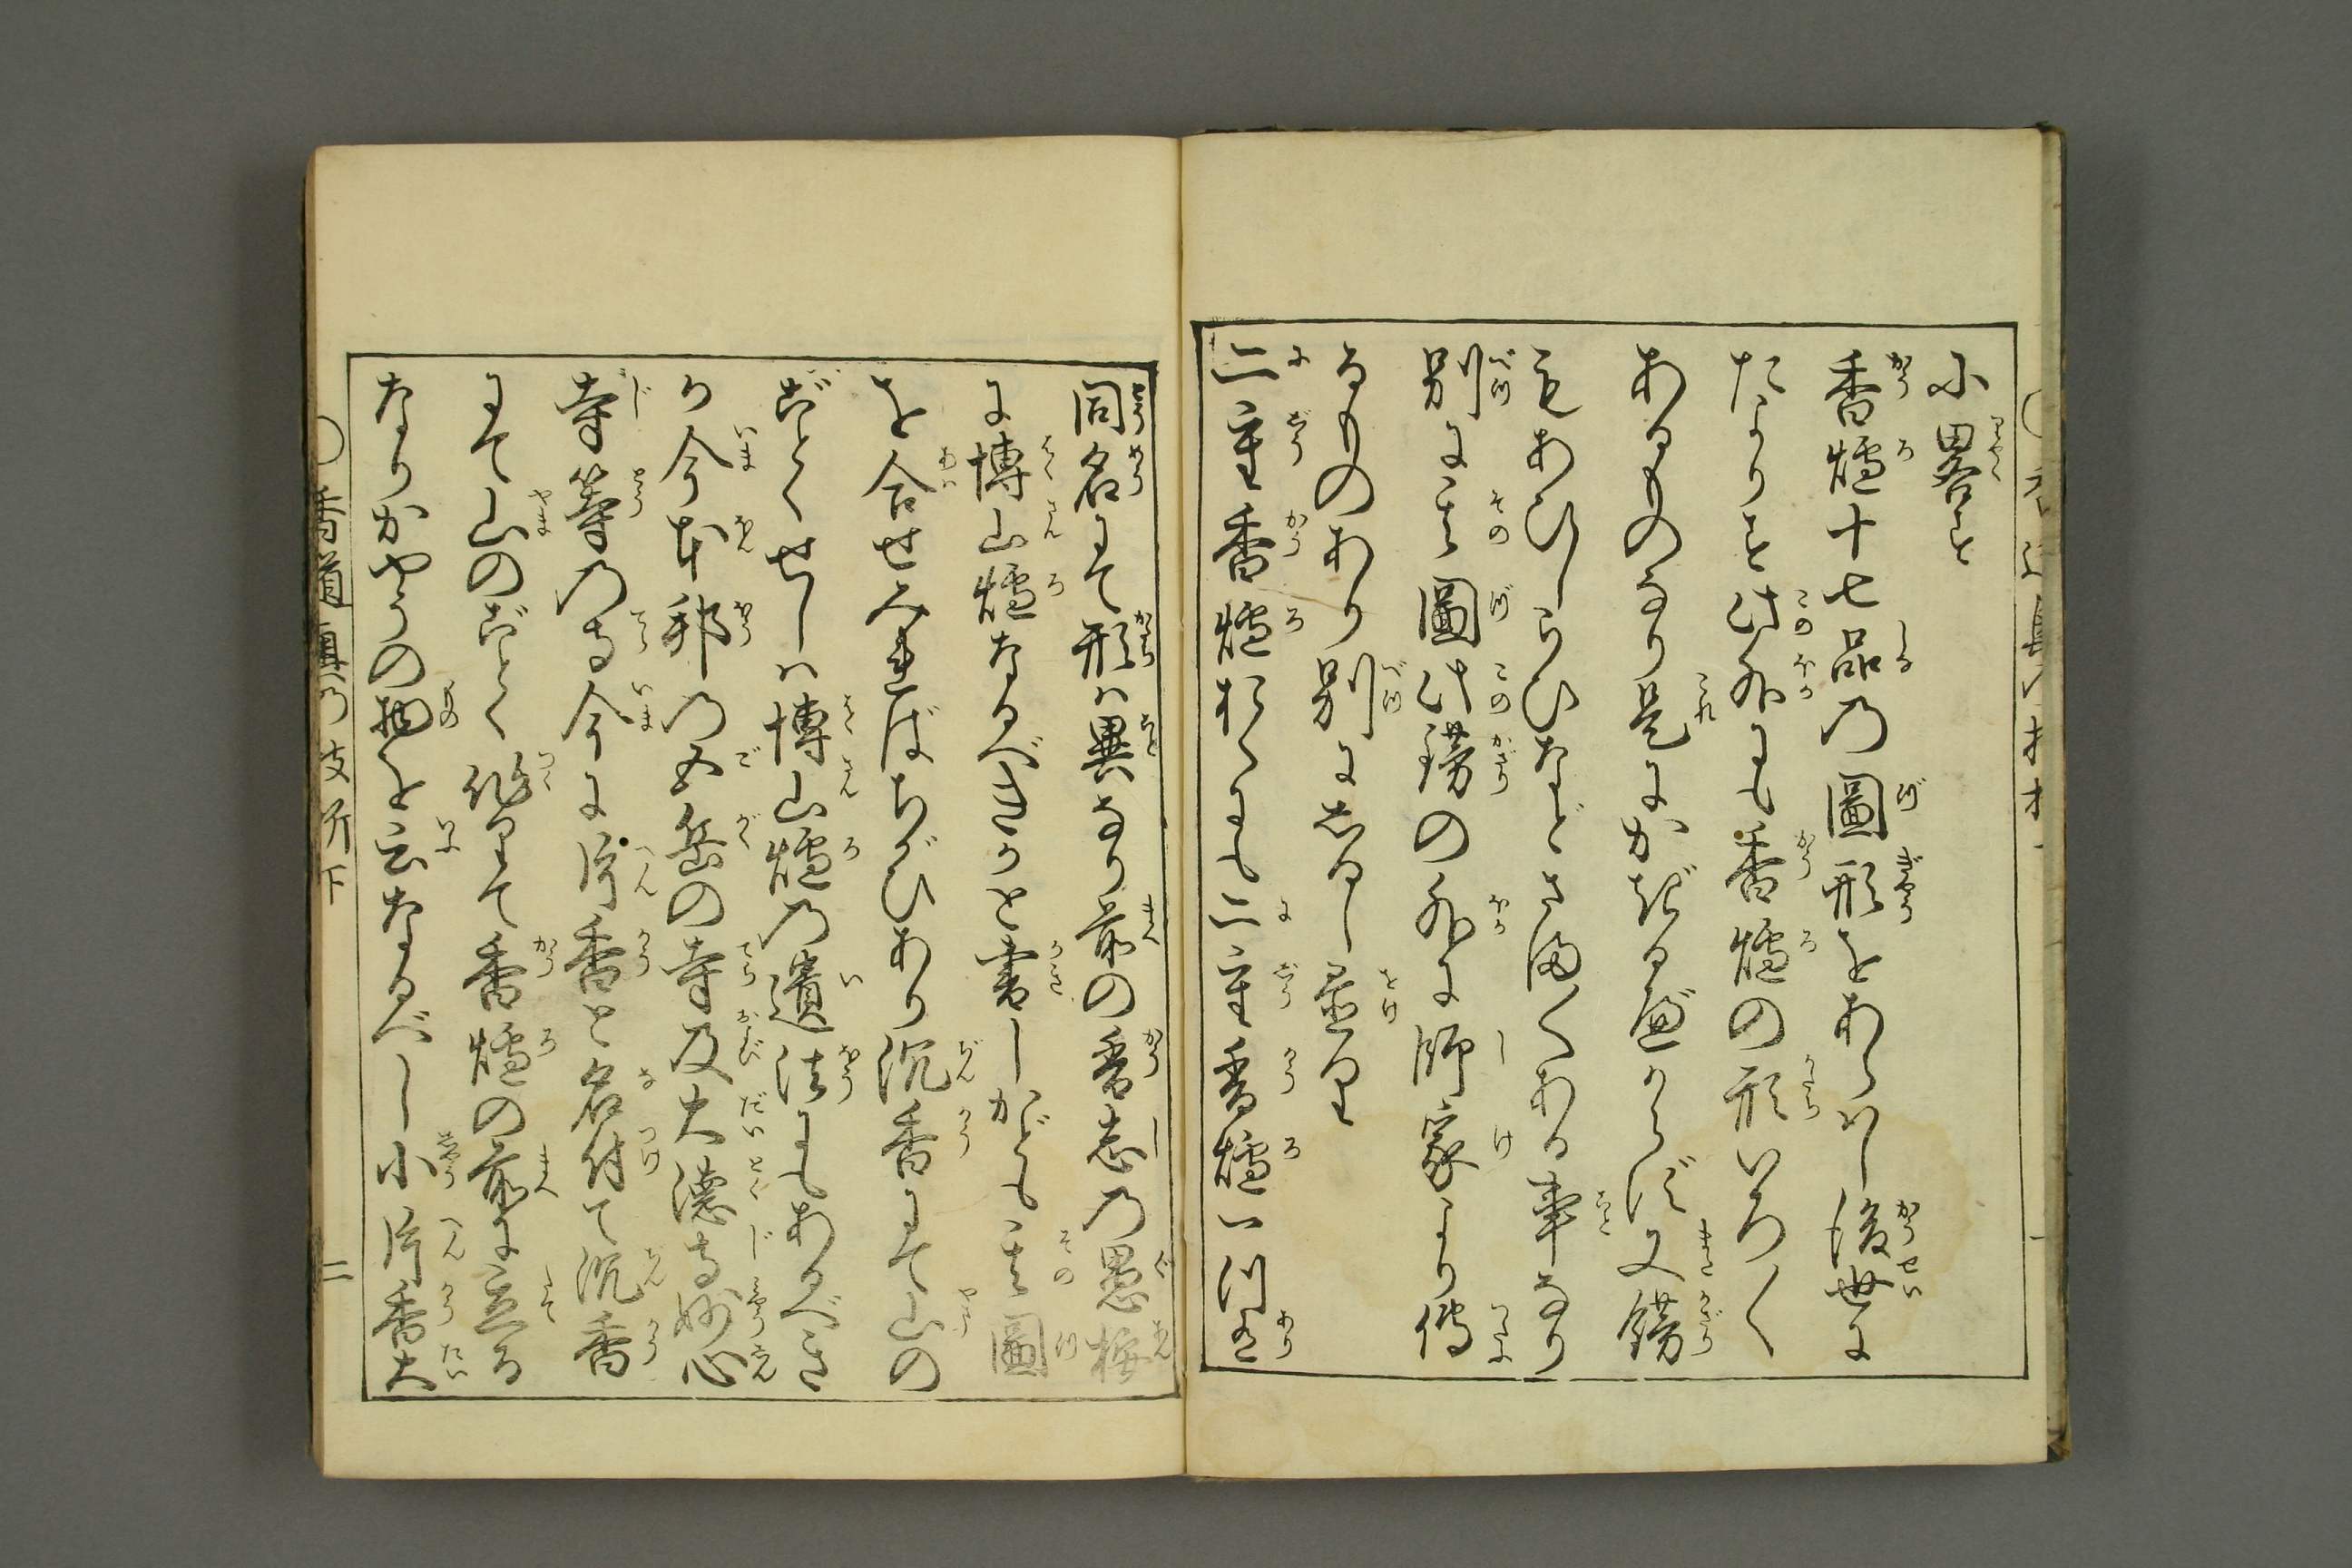 に畧す
香爐十七品乃圖形をあらハし後世に
たよりす此外にも香爐の形いろ〳〵
あるものなり是にかぎるべからず又錺
もあひしらひなどさま〴〵ある事なり
別に其圖此錺の外に師家より傳
るものあり別にしるし置り
二重香爐おくにも二重香爐一つ有
同名にて形ハ異なり前の香志乃愚按
に博山爐なるべきかと書しかども其圖
を合せみればちがひあり沉香にて山の
ごとくせしハ博山爐乃遺法にもあるべき
か今本邦乃五岳の寺及大德寺妙心
寺等乃寺今に片香と名付て沉香
にて山のごとく作りて香爐の前に立る
なりかやうの物を云なるべし小片香大
香道真乃枝折下
二